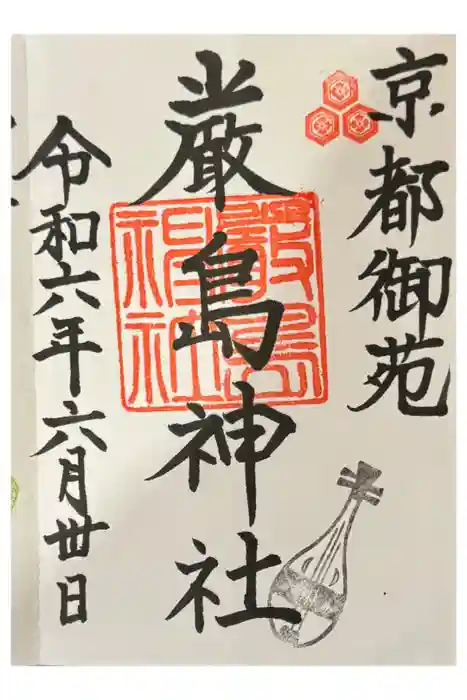 京都御苑
厳島神社
嚴島
神社
令和六年六月丗日